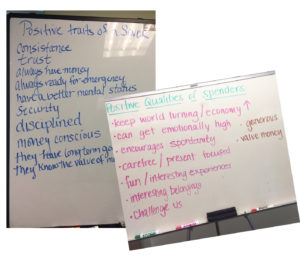 Positive traits of a
Consistance
trust
always have money
always ready for emergency
have a better mental status
Security
disciplined
money conscious
they have long term go
they know the value of m
Positive Qualities of Spenders
• keep world turning / economy ↑
• can get emotionally high
• encourages spontaneity
• carefree / present focused
• fun / interesting experiences
• interesting belongings
• Challenge us
• generous
• value money